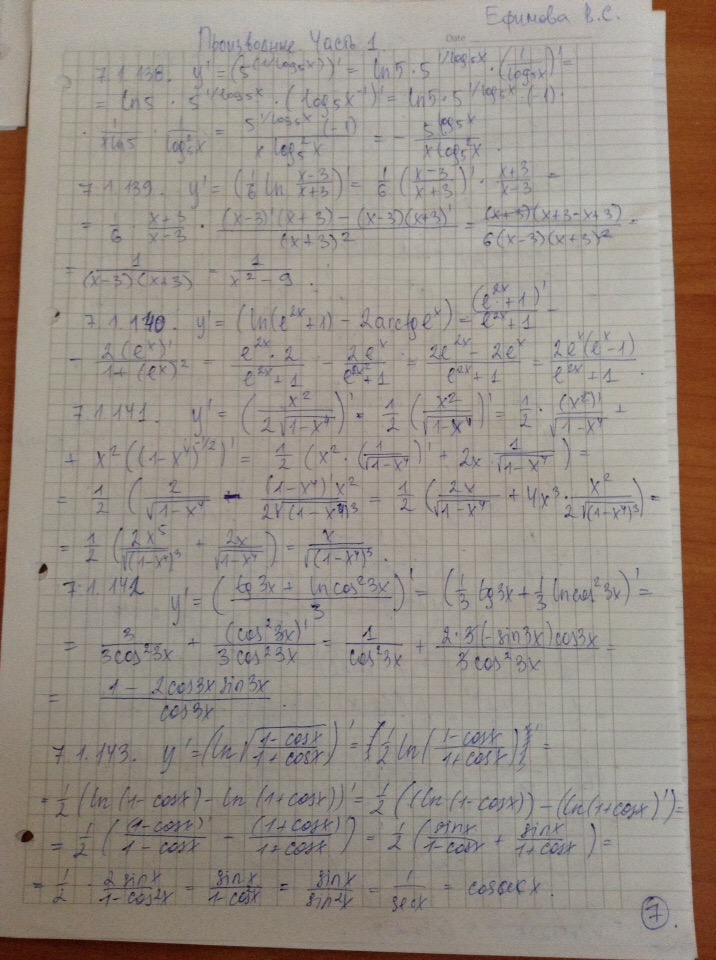 Ефимова В.С.
Производные Часть 1 Date
7.1.138. y' = (5^(1/log₅x))' = ln5 · 5^(1/log₅x) · (1/log₅x)' =
= ln5 · 5^(1/log₅x) · (log₅x⁻¹)' = ln5 · 5^(1/log₅x) · (-1) ·
· 1/(x ln5) · 1/(log₅²x) = 5^(1/log₅x) (-1)/(x log₅²x) = - 5^(log₅x)/(x log₅²x).
7.1.139. y' = (1/6 ln (x-3)/(x+3))' = 1/6 ((x-3)/(x+3))' · (x+3)/(x-3) =
= 1/6 · (x+3)/(x-3) · ((x-3)'(x+3) - (x-3)(x+3)')/(x+3)² = (x+3)(x+3-x+3)/(6(x-3)(x+3)²) =
= 1/((x-3)(x+3)) = 1/(x²-9).
7.1.140. y' = (ln(e^(2x)+1) - 2arctg e^x) = (e^(2x)+1)'/(e^(2x)+1) -
- 2(e^x)'/(1+(e^x)²) = e^(2x)·2/(e^(2x)+1) - 2e^x/(e^(2x)+1) = (2e^(2x) - 2e^x)/(e^(2x)+1) = 2e^x(e^x-1)/(e^(2x)+1).
7.1.141. y' = (x²/(2√(1-x⁴)))' = 1/2 (x²/√(1-x⁴))' = 1/2 · (x²)'/√(1-x⁴) +
+ x²((1-x⁴)^(-1/2))' = 1/2 (x² · (1/√(1-x⁴))' + 2x · 1/√(1-x⁴)) =
= 1/2 (2/√(1-x⁴) - (1-x⁴)'x²/(2√(1-x⁴)³) = 1/2 (2x/√(1-x⁴) + 4x³ · x²/(2√(1-x⁴)³)) =
= 1/2 (2x⁵/√(1-x⁴)³ + 2x/√(1-x⁴)) = x/√(1-x⁴)³.
7.1.142 y' = ((tg3x + ln cos²3x)/3)' = (1/3 tg3x + 1/3 ln cos²3x)' =
= 3/(3cos²3x) + (cos²3x)'/(3cos²3x) = 1/(cos²3x) + 2·3(-sin3x)cos3x/(3cos²3x) =
= (1 - 2cos3x sin3x)/(cos3x).
7.1.143. y' = (ln√((1-cosx)/(1+cosx)))' = (1/2 ln((1-cosx)/(1+cosx)))' =
= 1/2 (ln(1-cosx) - ln(1+cosx))' = 1/2 ((ln(1-cosx)) - (ln(1+cosx)') =
= 1/2 ((1-cosx)'/(1-cosx) - (1+cosx)'/(1+cosx)) = 1/2 (sinx/(1-cosx) + sinx/(1+cosx)) =
= 1/2 · 2sinx/(1-cos²x) = sinx/(1-cos²x) = sinx/sin²x = 1/secx = cosecx.
7.